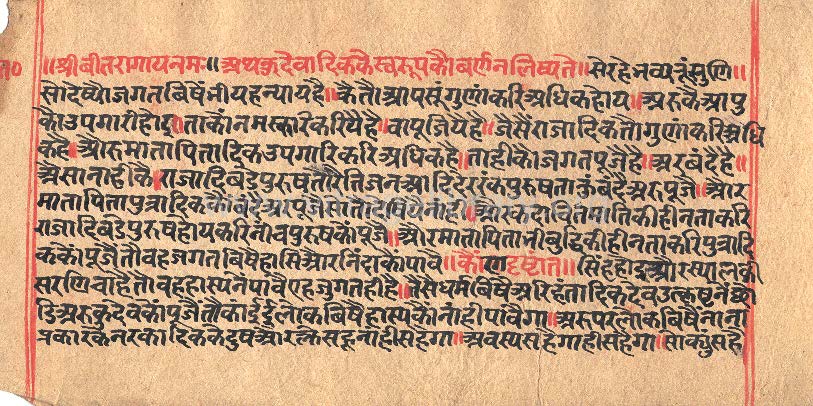 ॥श्रीवीतरागायनमः॥अथकुदेवादिककैस्वरूपकौवर्णनलिष्यते॥सेरहेनव्यतूंसुणि॥
सोदेष्योजगतविषैंनीयहन्यायहै॥कैतौआपसूंगुणांकरिअधिकहोय॥अरुकैआपु
कौउपगारीहोइताकौंनमस्कारकरियैहै॥वापूजियैहै॥जैसैंराजादिकतौगुणांकरिअधि
कहै॥औरुमातापितादिकउपगारकरिअधिकहै॥ताहीकौजगतपूजैहै॥अरबंदैहै॥
राजादिबडेपुरुषतौरैतिजनआदिरंकपुरुषताकूंबंदैअरुपूजै॥और
मातापितापुत्रादिक
राजादिबडेपुरुषहोयकरिनीचपुरुषकौंपूजै॥औरमातापितानीबुद्धिकीहीनताकरिपुत्रादि
ककौंपूजैतौवहजगतविषैहासिऔरनिंदाकौंपावै॥कौंणदृष्टांत॥सिंहहोइऔरस्यालकी
सरणिचाहैतौवहहास्यनैंपावैएहजुगतहीहै॥तैसैंधर्मविषैअरिहंतादिकदेवउत्कृष्टनैंछो
डिअरुकुदेवकौंपूजैंतौकांईईलोकविषैहास्यकौंनांहीपावैगा॥अरुपरलोकविषैनाना
प्रकारकेनरकादिककैदुषऔरक्लेसहूनांहीसहैगा॥अवस्यसहैगाहीसहैगा॥सोक्यूंसहै